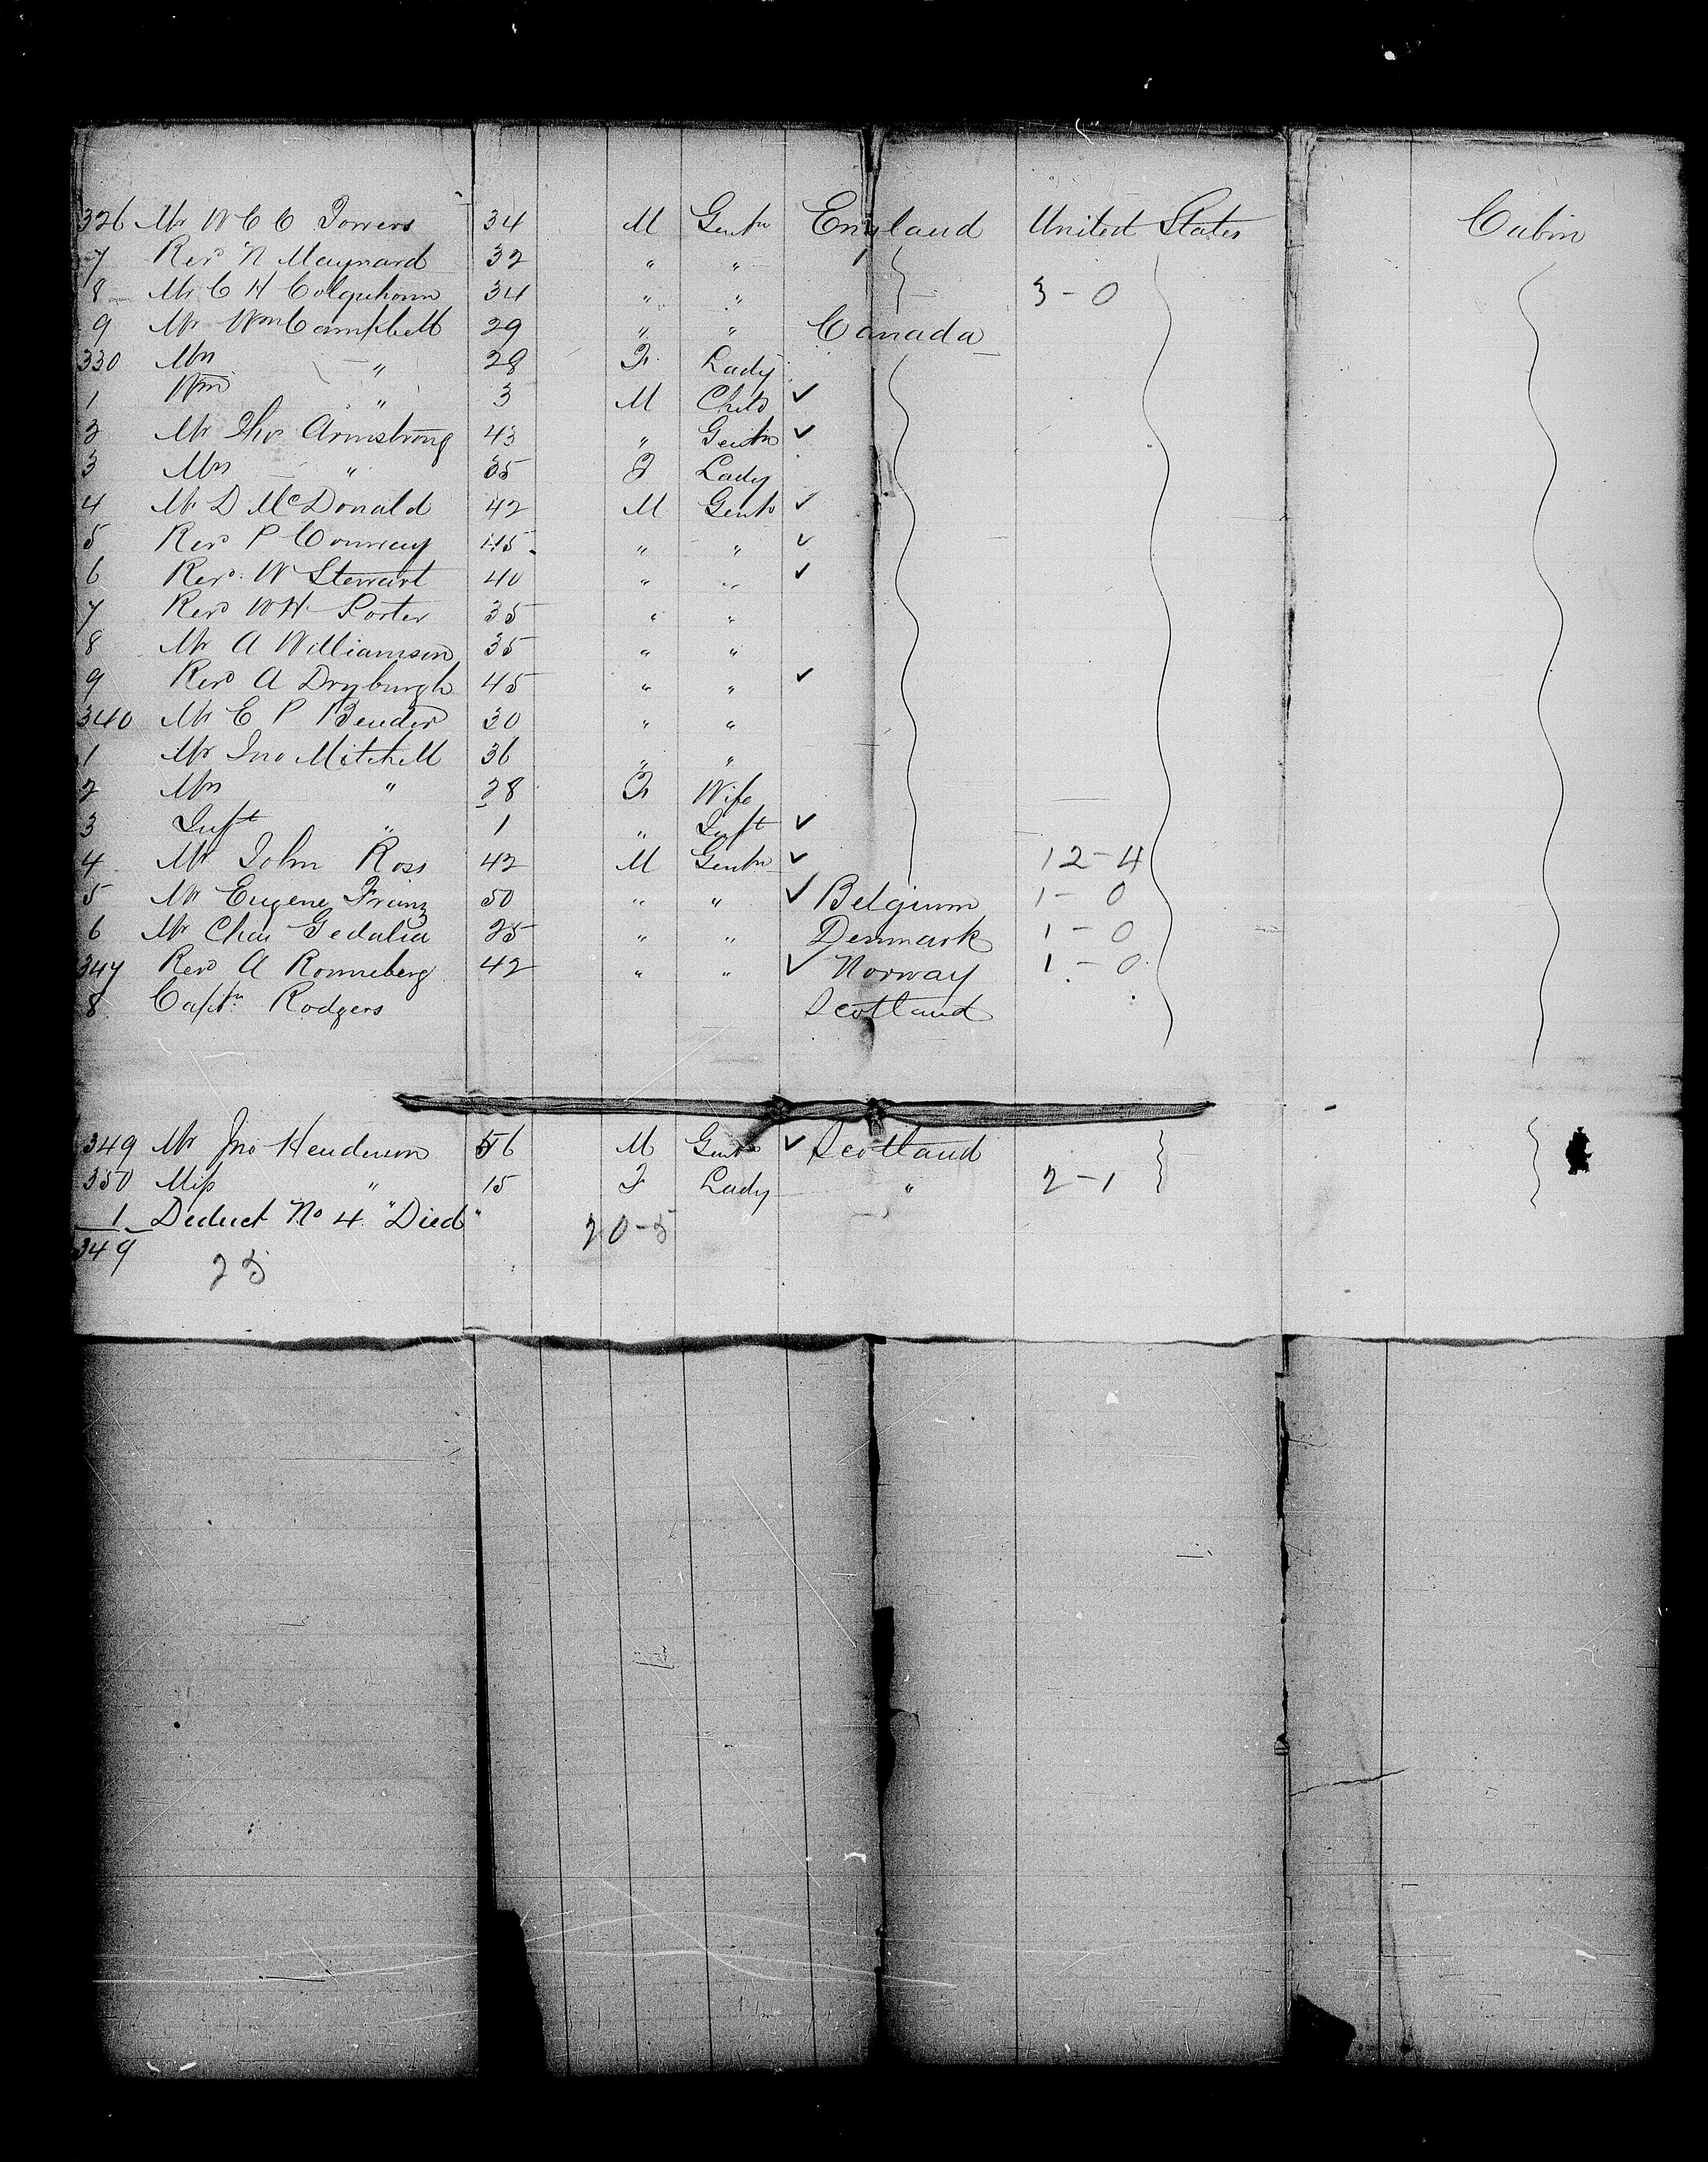 326 Mr W C C Towers 34 M Gentn England United States Cabin
7 Revd N Maynard 32 " "
8 Mr C H Colquhoun 34 " " 3-0
9 Mr Wm Campbell 29 " " Canada
330 Mrs " 28 F Lady
1 Wm " 3 M Child ✓
3 Mr Thos Armstrong 43 " Gentn ✓
3 Mrs " 35 F Lady
4 Mr D McDonald 42 M Gentn ✓
5 Revd P Conway 45 " " ✓
6 Revd W Stewart 40 " " ✓
7 Revd W H Porter 35 " "
8 Mr A Williamson 35 " "
9 Revd A Dryburgh 45 " " ✓
340 Mr E P Bender 30 " "
1 Mr Jno Mitchell 36 " "
2 Mrs " 28 F Wife
3 Inft " 1 " Inft ✓
4 Mr John Ross 42 M Gentn ✓ 12-4
5 Mr Eugene 50 " " ✓ Belgium 1-0
6 Mr Chas Gedalia 25 " " Denmark 1-0
347 Revd A Ronneberg 42 " " ✓ Norway 1-0
8 Captn Rodgers Scotland
349 Mr Jno Henderson 56 M Gentn ✓ Scotland
350 Miss " 15 F Lady " 2-1
1 Deduct No 4 "Died" 20-5
349
25